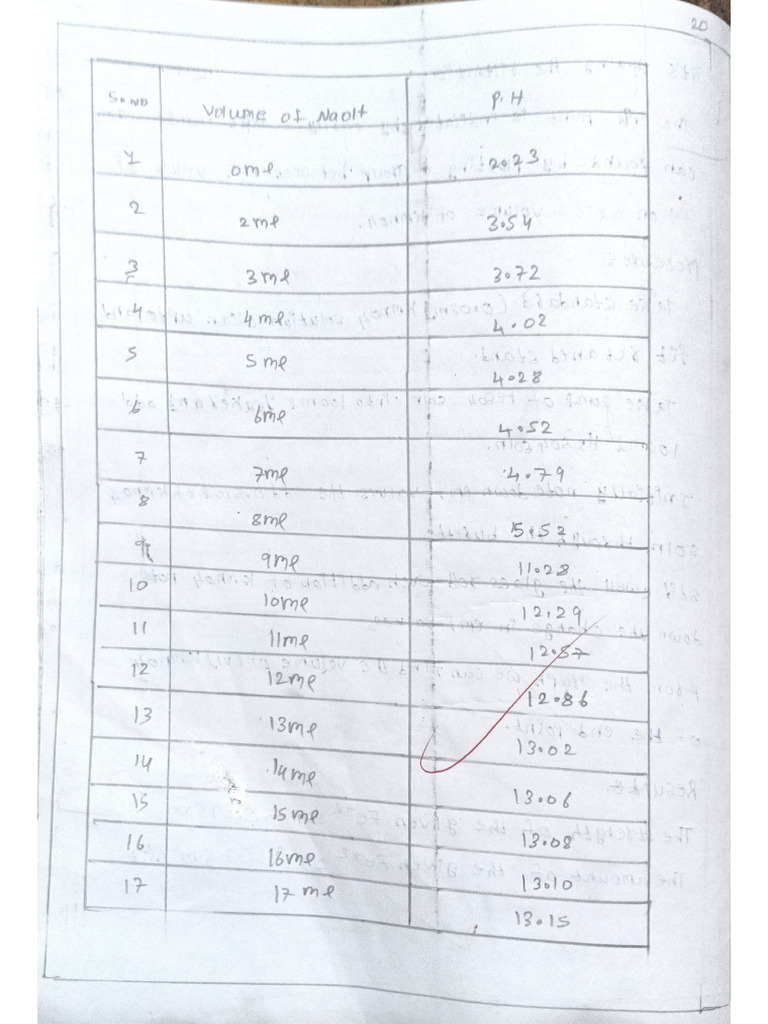 20
S.NO Volume of NaOH P.H
1 0ml 2.23
2 2ml 3.54
3 3ml 3.72
4 4ml 4.02
5 5ml 4.28
6 6ml 4.52
7 7ml 4.79
8 8ml 5.53
9 9ml 11.28
10 10ml 12.29
11 11ml 12.57
12 12ml 12.86
13 13ml 13.02
14 14ml 13.06
15 15ml 13.08
16 16ml 13.10
17 17ml 13.15